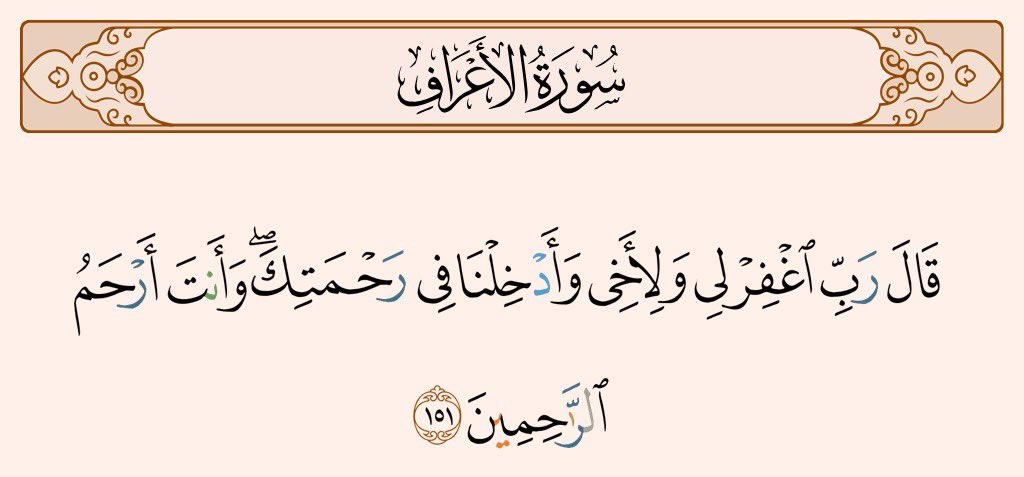 سُورَةُ الأَعْرَافِ
قَالَ رَبِّ ٱغْفِرْ لِى وَلِأَخِى وَأَدْخِلْنَا فِى رَحْمَتِكَ ۖ وَأَنتَ أَرْحَمُ
ٱلرَّٰحِمِينَ ١٥١